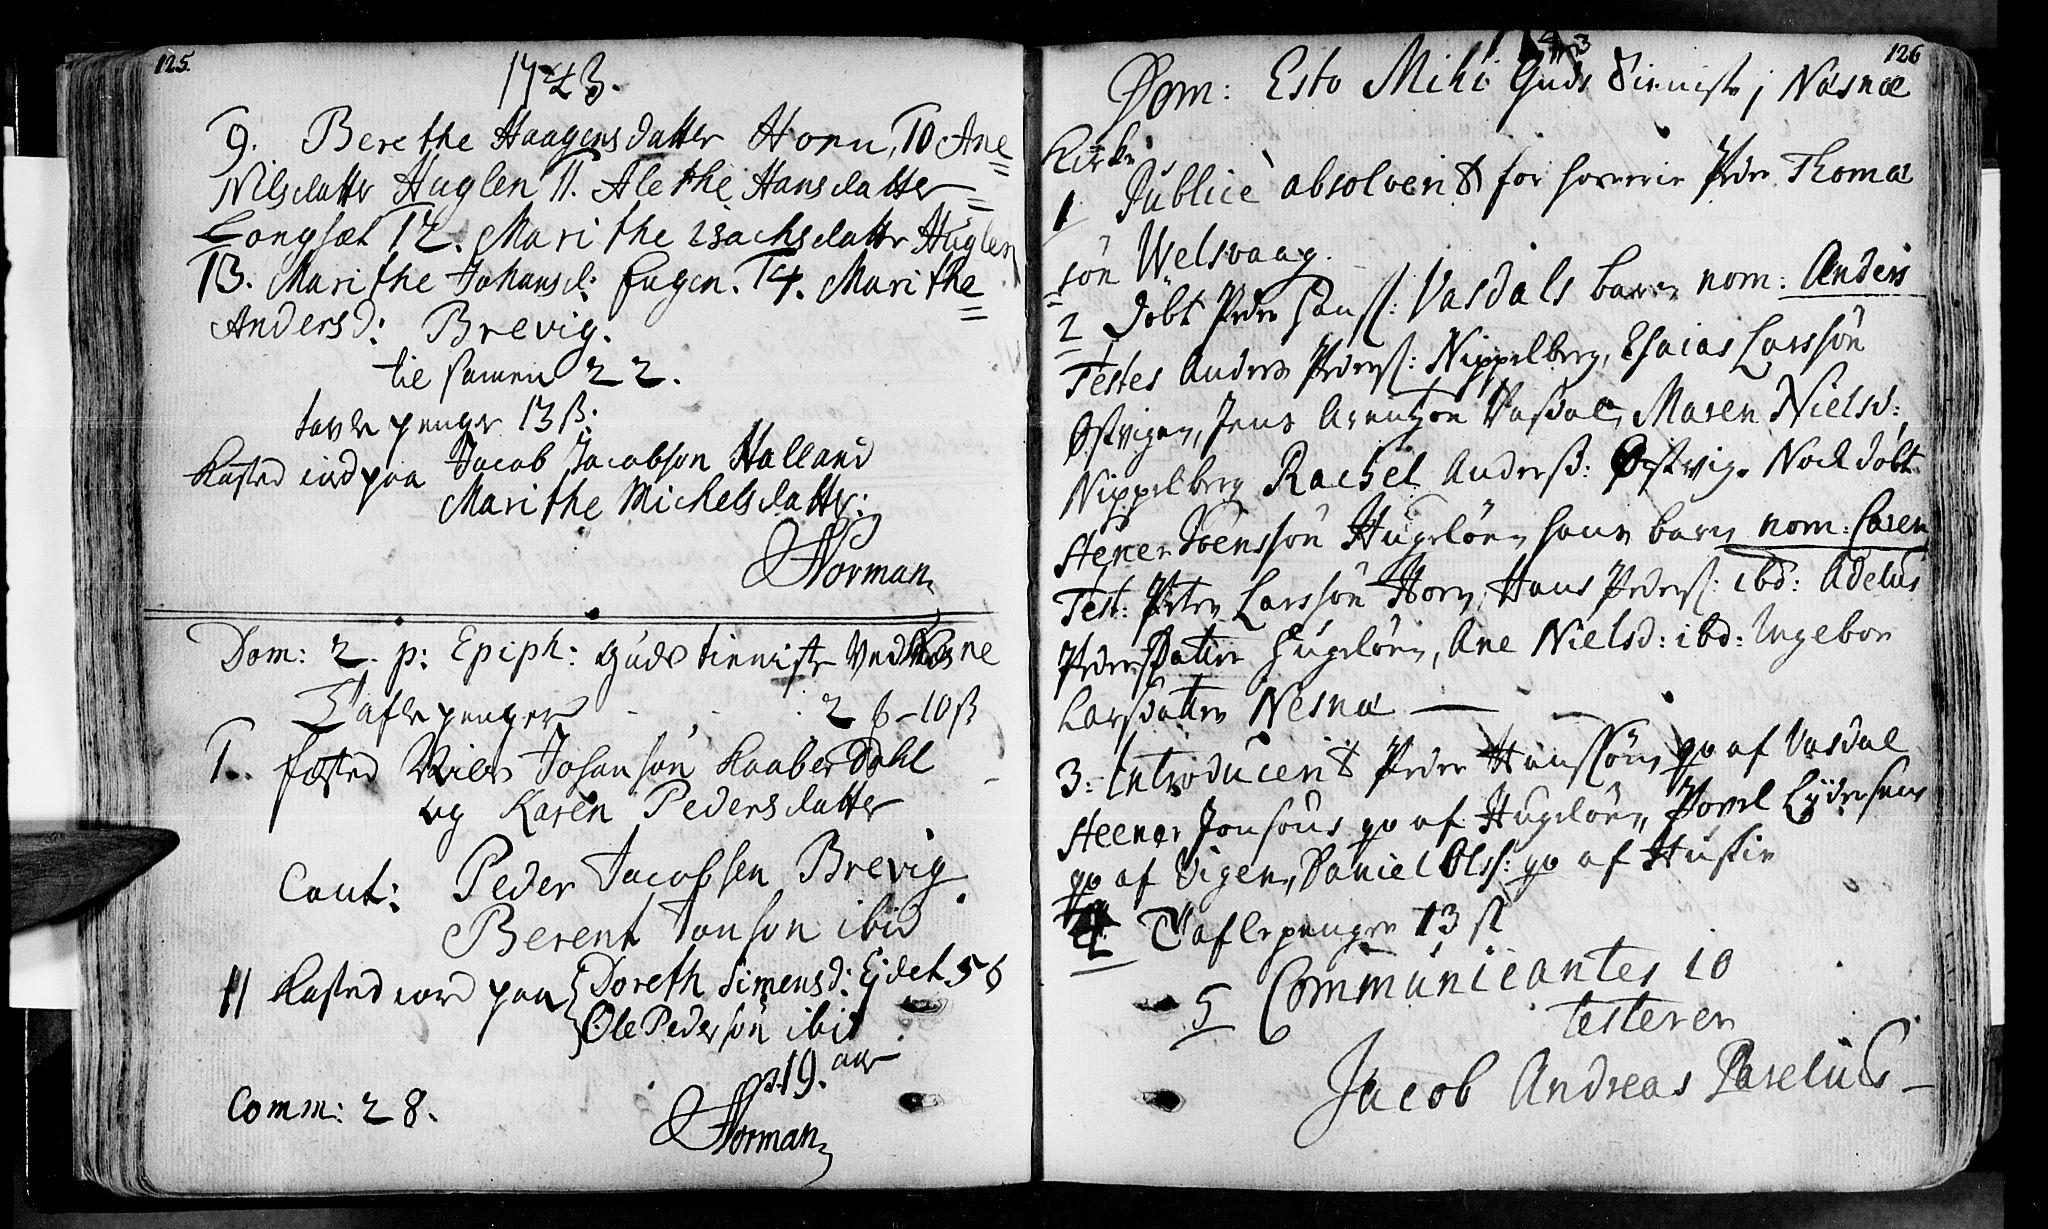 125.
1743.
9. Berethe Haagensdatter Horn, 10 Ane
Nilsdatter Huglen 11. Alethe Hansdatter
Longsæt 12. Marithe Isachsdattr Huglen
13. Marithe Johansd: Eugen. 14. Marithe
Andersd: Brevig.
til samen 22.
tavle penger 13 ß:
Kasted iord paa Jacob Jacobson Halland
Marithe Michelsdatter:
Norman
Dom: 2. p: Epiph: Guds tieniste Ved Nesne
Tafle penger - - - 2 ƒ - 10 ß
1. fæsted Niels Johanson Kaaberdahl
og Karen Pedersdatter
Caut: Peder Jacobsen Brevig
Berent Jonson ibid.
11 Kasted iord paa Doreth Simensd: Ejdet 56
Ole Pederson ibid
19. aar
Comm: 28.
Norman
126
43
Dom: Esto Mihi Guds tieniste i Næsnæ
Kirke
1 Publicè absolverit for horerie Peder Thomæ
sön Welsvaag.
2 Döbt Peder Hanss: Vasdals barn nom: Anders
Testes Anders Peders: Nippelberg, Esaias Larssön
Østvigen, Jens Arentzon Vasdal, Maren Nielsd:
Nippelberg Rachel Anderß: Østvig. Nock döbt
Stener Joenssön Hugelöen hans barn nom: Caren
Test: Peter Larssön Horn, Hans Peders: ibd: Adelus
Peders Datter Hugelöen, Ane Nielsd: ibd: Ingebor
Larsdatter Nesnæ —
3: Introducerit Peder Hanssöns qv af Vasdal
Steener Jonsöns qv af Hugelöen, Povel Eÿdersens
qv af Vigen, Daniel Olss: qv af Hustie
4 Taflepenger 13 ß
5 Communicantes 10
testerer
Jacob Andreas Parelius